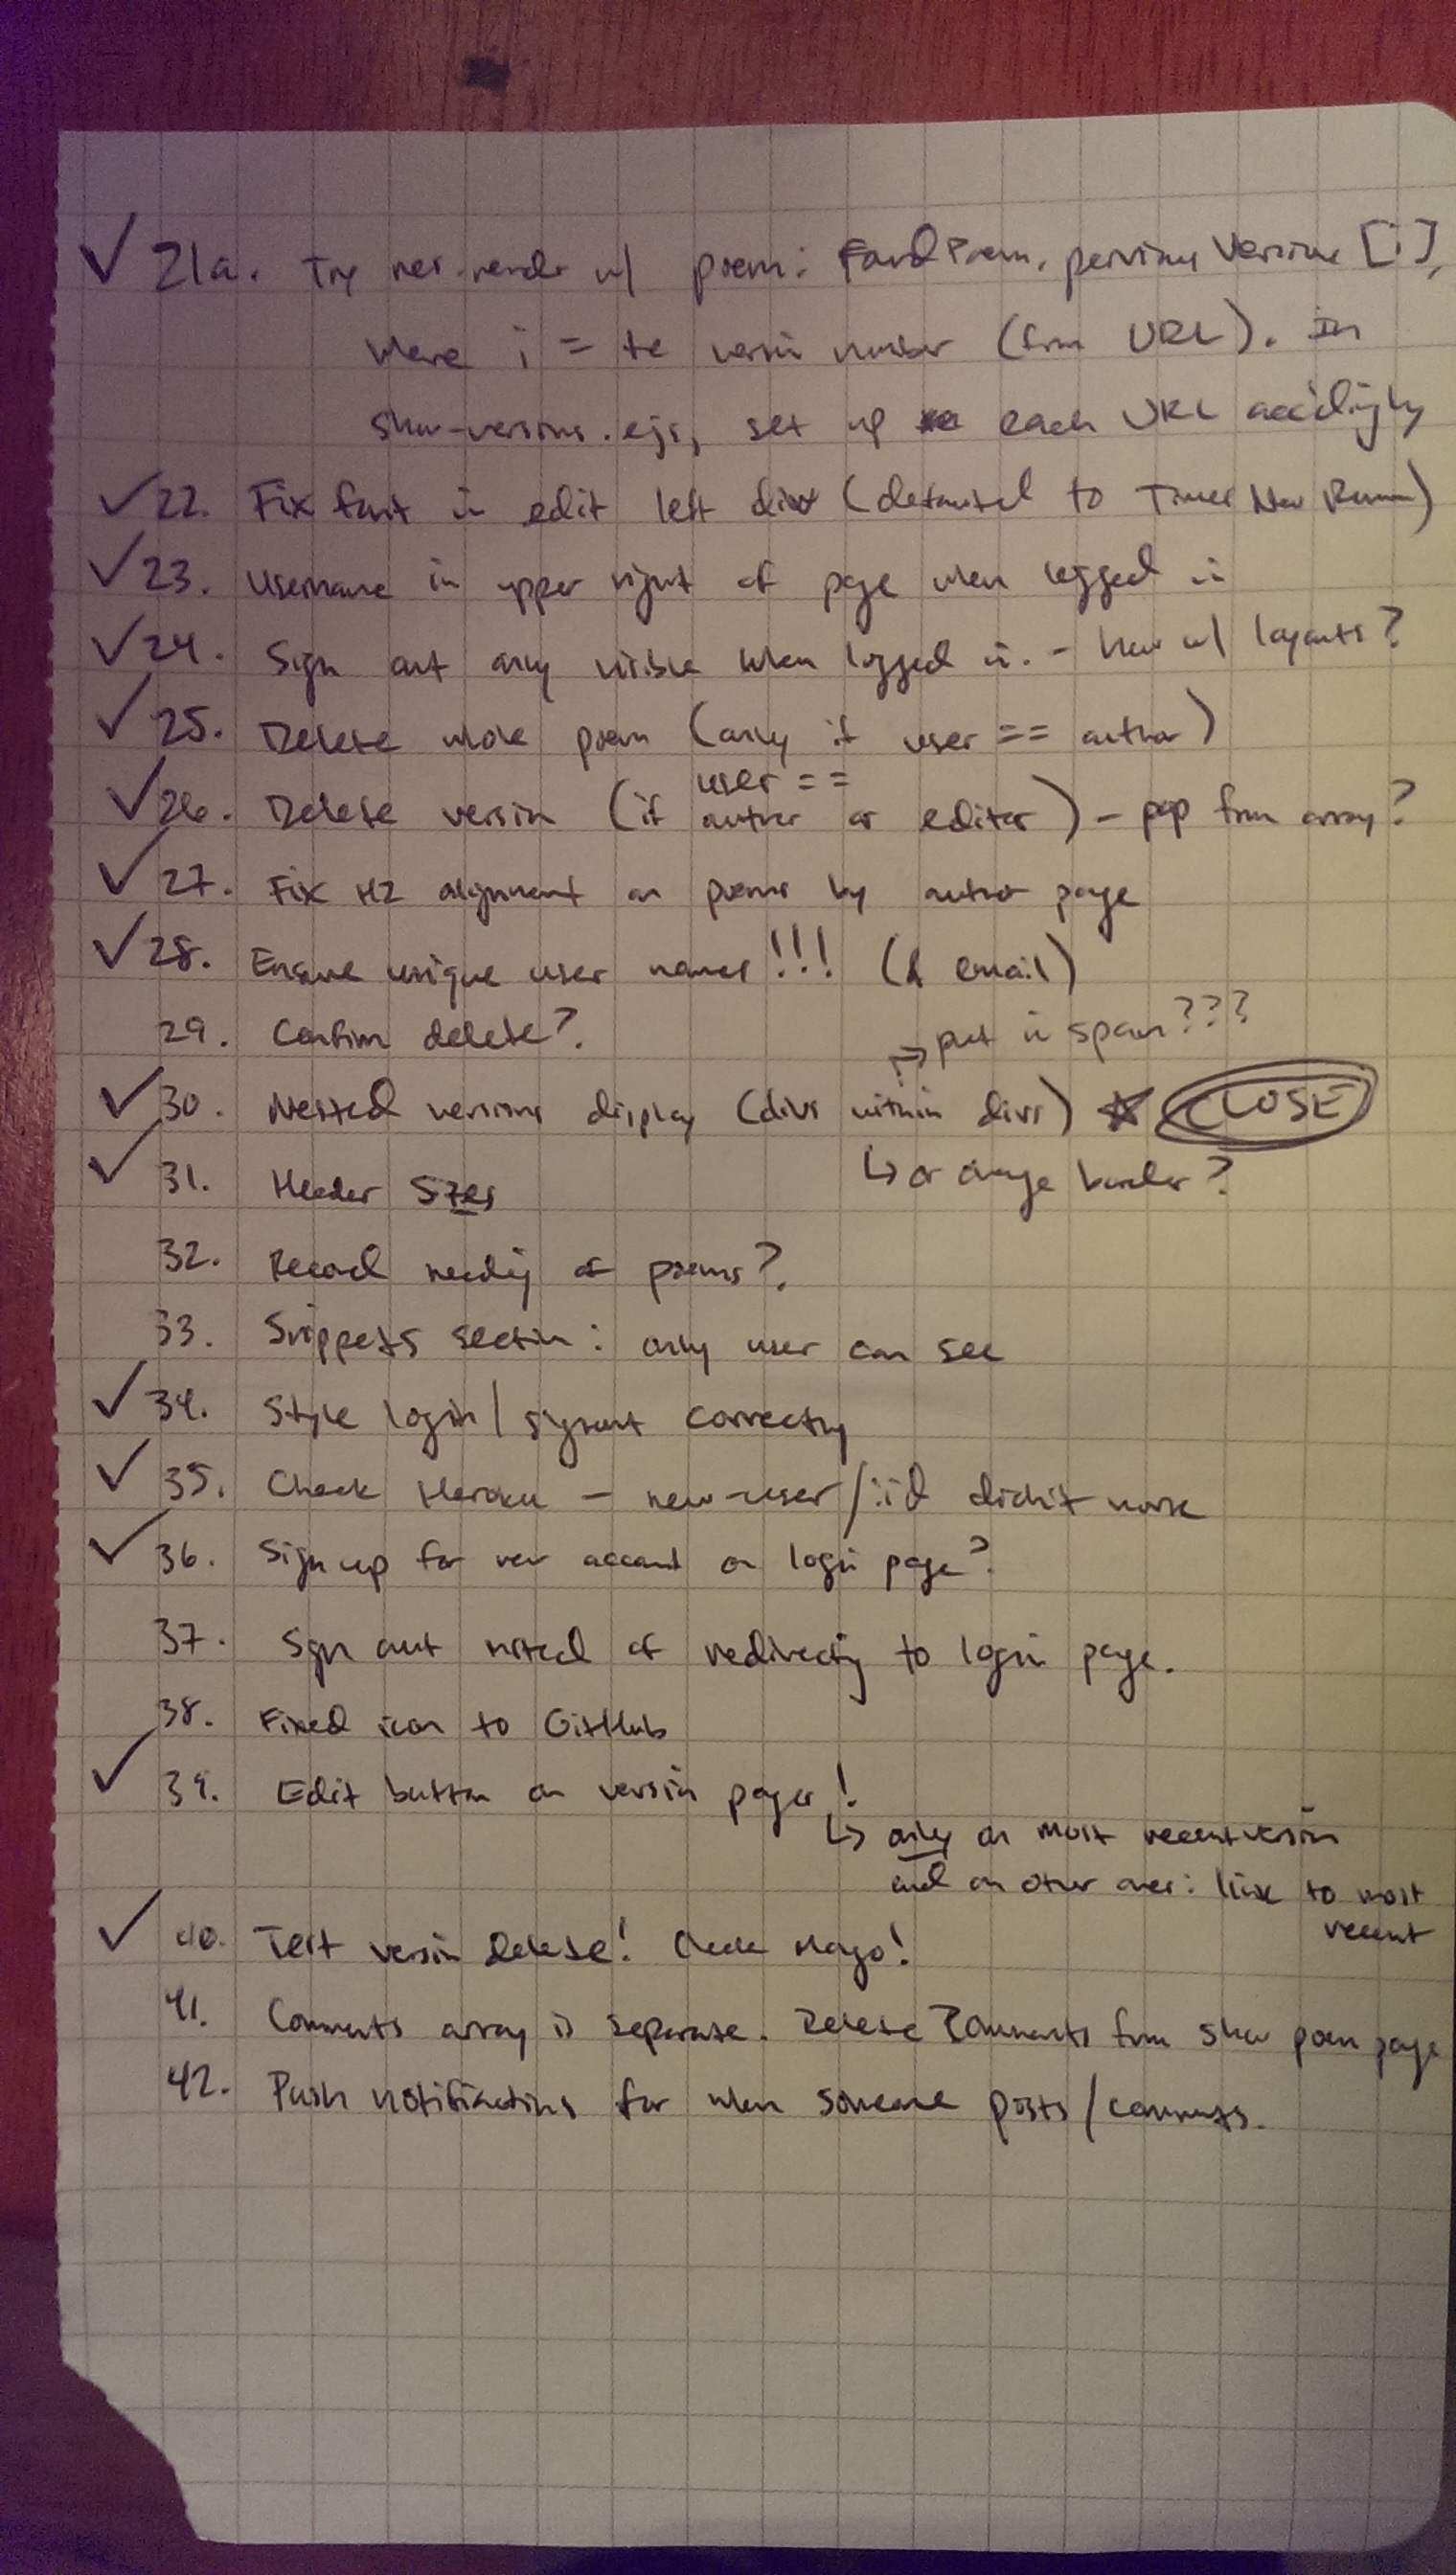 ✓ 21a. Try res.render w/ poem: FoundPoem. previousVersions [i],
where i = the version number (from URL). In
show-versions.ejs, set up each URL accordingly
✓ 22. Fix font in edit left div (defaulted to Times New Roman)
✓ 23. Username in upper right of page when logged in
✓ 24. Sign out only visible when logged in. - how w/ layouts?
✓ 25. Delete whole poem (only if user == author)
✓ 26. Delete version (if user == author or editor) - pop from array?
✓ 27. Fix H2 alignment on poems by author page
✓ 28. Ensure unique user names!!! (& email)
29. Confirm delete?
↱ put in span???
✓ 30. Nested versions display (divs within divs) ☆ CLOSE
↳ or change border?
✓ 31. Header Sizes
32. Record reading of poems?
33. Snippets section: only user can see
✓ 34. Style login/signout correctly
✓ 35. Check Heroku - new-user/:id didn't work
✓ 36. Sign up for new account on login page?
37. Sign out instead of redirecting to login page.
38. Fixed icon to GitHub
✓ 39. Edit button on version pages!
↳ only on most recent version
and on other ones: link to most
recent
✓ 40. Test version delete! Check Mongo!
41. Comments array is separate. Delete comments from show poem page
42. Push notifications for when someone posts/comments.